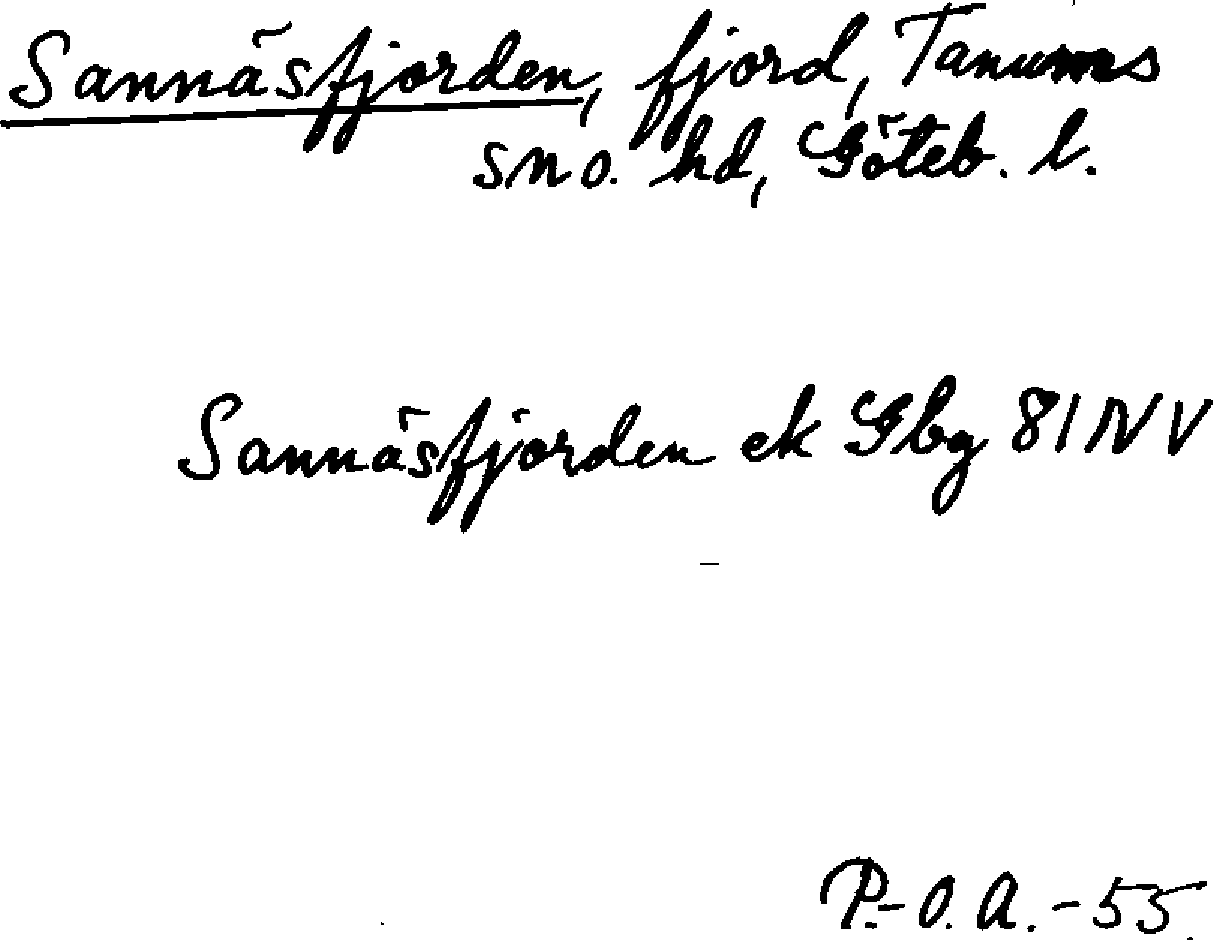 Sannäsfjorden, fjord, Tanums
sn o. hd, Göteb. l.
Sannäsfjorden ek Gbg 81 NV
P.-O. A. -55.